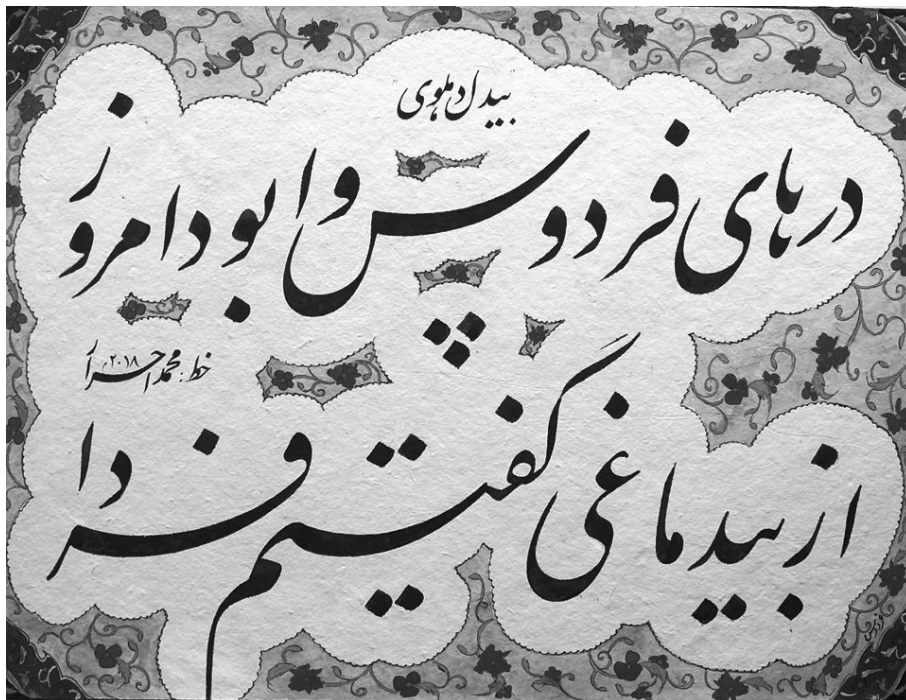 بیدل دهلوی
درهای فردوس وا بود امروز
خط: محمد احرار ٢٠١٨م
از بیدماغی گفتیم فردا